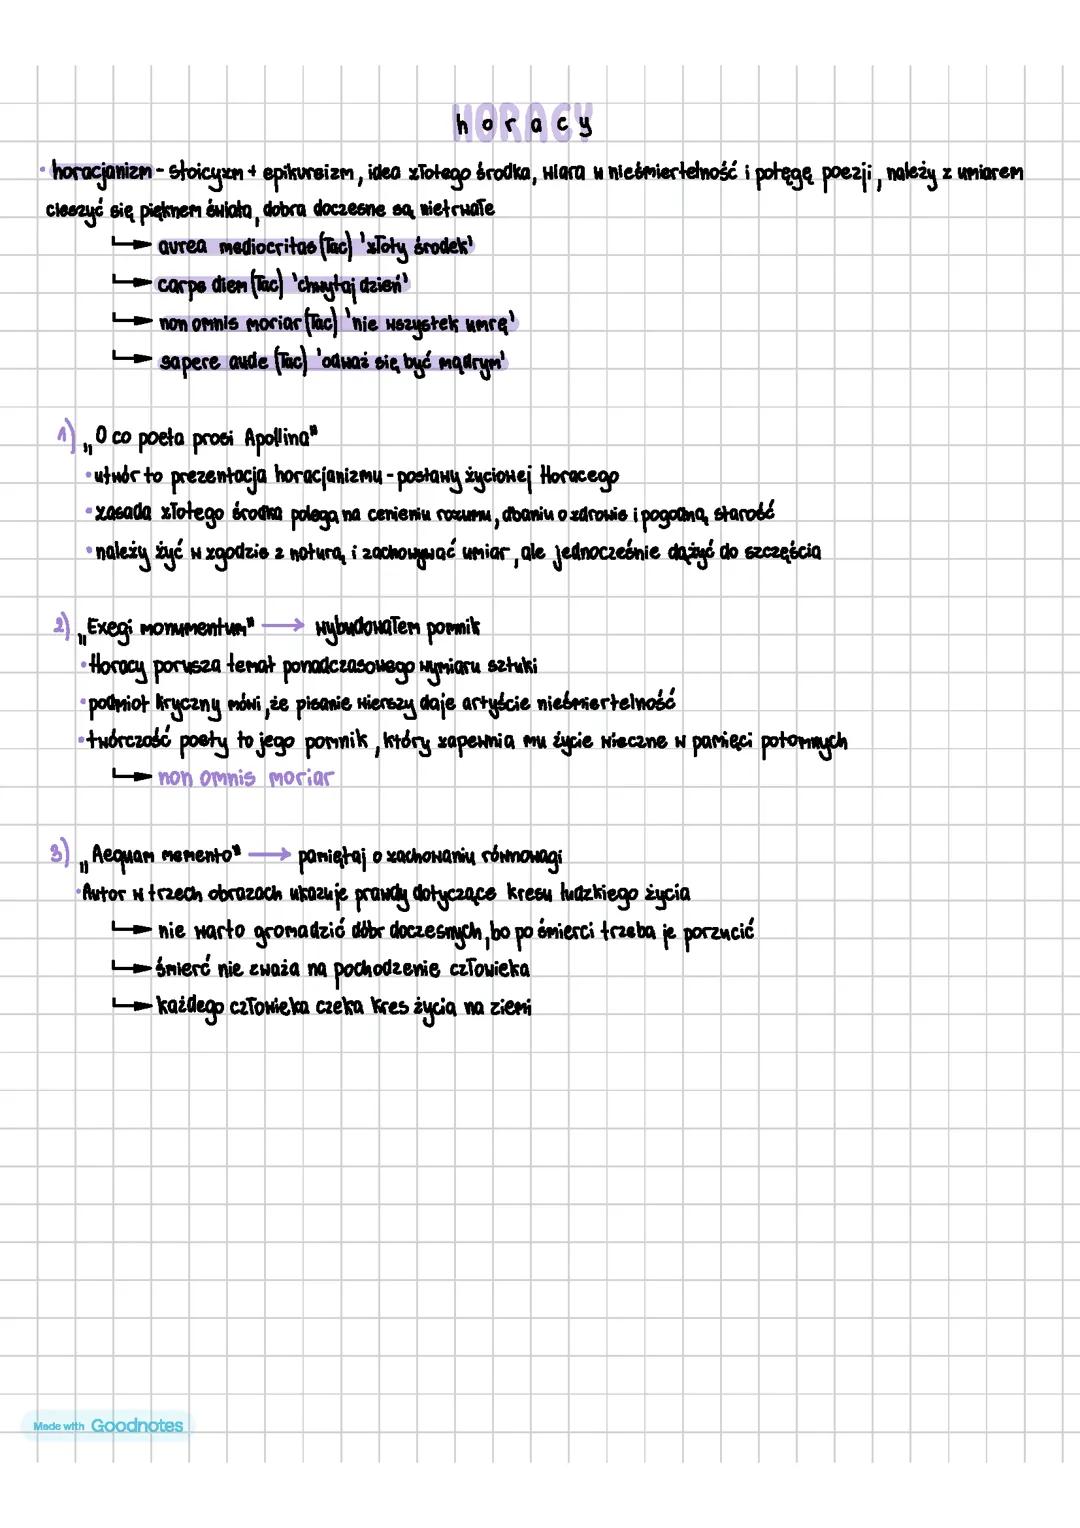 horacy
• horacjanizm - stoicyzm + epikureizm, idea złotego środka, wiara w nieśmiertelność i potęgę poezji, należy z umiarem
cieszyć się pięknem świata, dobra doczesne są nietrwałe
↳ aurea mediocritas (łac) 'złoty środek'
↳ carpe diem (łac) 'chwytaj dzień'
↳ non omnis moriar (łac) 'nie wszystek umrę'
↳ sapere aude (łac) 'odważ się być mądrym'
1) „O co poeta prosi Apollina"
• utwór to prezentacja horacjanizmu - postawy życiowej Horacego
• zasada złotego środka polega na cenieniu rozumu, dbaniu o zdrowie i pogodną starość
• należy żyć w zgodzie z naturą i zachowywać umiar, ale jednocześnie dążyć do szczęścia
2) „Exegi monumentum" → wybudowałem pomnik
• Horacy porusza temat ponadczasowego wymiaru sztuki
• podmiot liryczny mówi, że pisanie wierszy daje artyście nieśmiertelność
• twórczość poety to jego pomnik, który zapewnia mu życie wieczne w pamięci potomnych
↳ non omnis moriar
3) „Aequam memento" → pamiętaj o zachowaniu równowagi
• Autor w trzech obrazach ukazuje prawdy dotyczące kresu ludzkiego życia
↳ nie warto gromadzić dóbr doczesnych, bo po śmierci trzeba je porzucić
↳ śmierć nie zważa na pochodzenie człowieka
↳ każdego człowieka czeka kres życia na ziemi
Made with Goodnotes